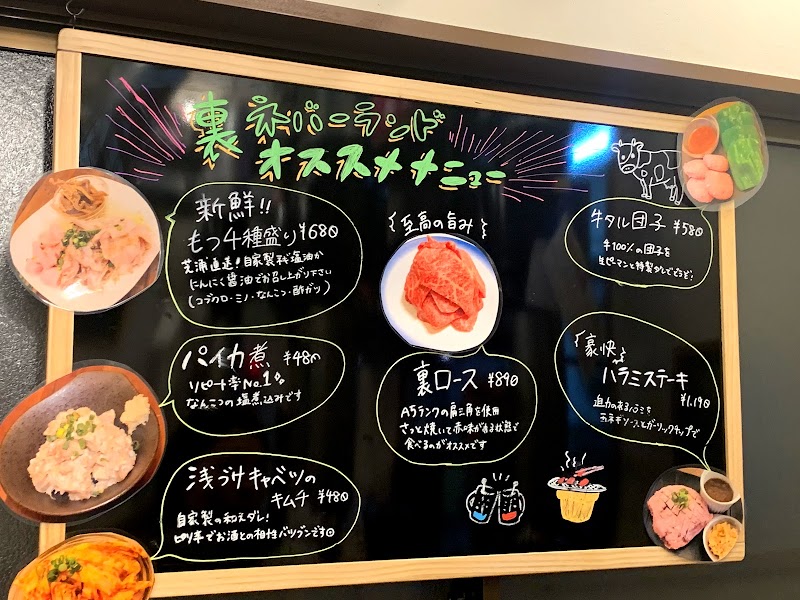 裏 ネバーランド
オススメメニュー
新鮮!!
もつ4種盛り ¥680
芝浦直送!自家製ネギ塩油か
にんにく醤油でお召し上がり下さい
(コブクロ・ミノ・なんこつ・酢ガツ)
パイカ煮 ¥480
リピート率No.1
なんこつの塩煮込みです
浅づけキャベツの
キムチ ¥480
自家製の和えダレ!
ピリ辛でお酒との相性バツグンです
至高の旨み
裏ロース ¥890
A5ランクの肩三角を使用
さっと焼いて赤味がある状態で
食べるのがオススメです
牛タル団子 ¥580
牛100%の団子を
生ピーマンと特製ダレでどうぞ!
豪快
ハラミステーキ
¥1,190
迫力のあるハラミを
玉ネギソースとガーリックチップで